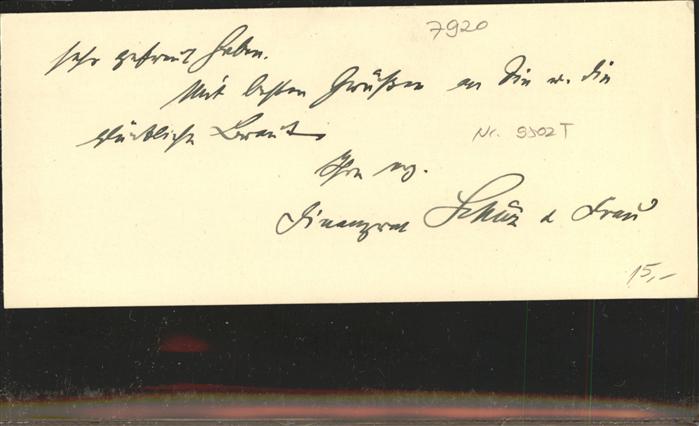 7920
sehr gefreut haben.
Mit besten Grüßen an Sie u. die
glückliche Braut
Ihr erg.
Nr. 5502 T
Finanzrat Schüz u Frau
15,-